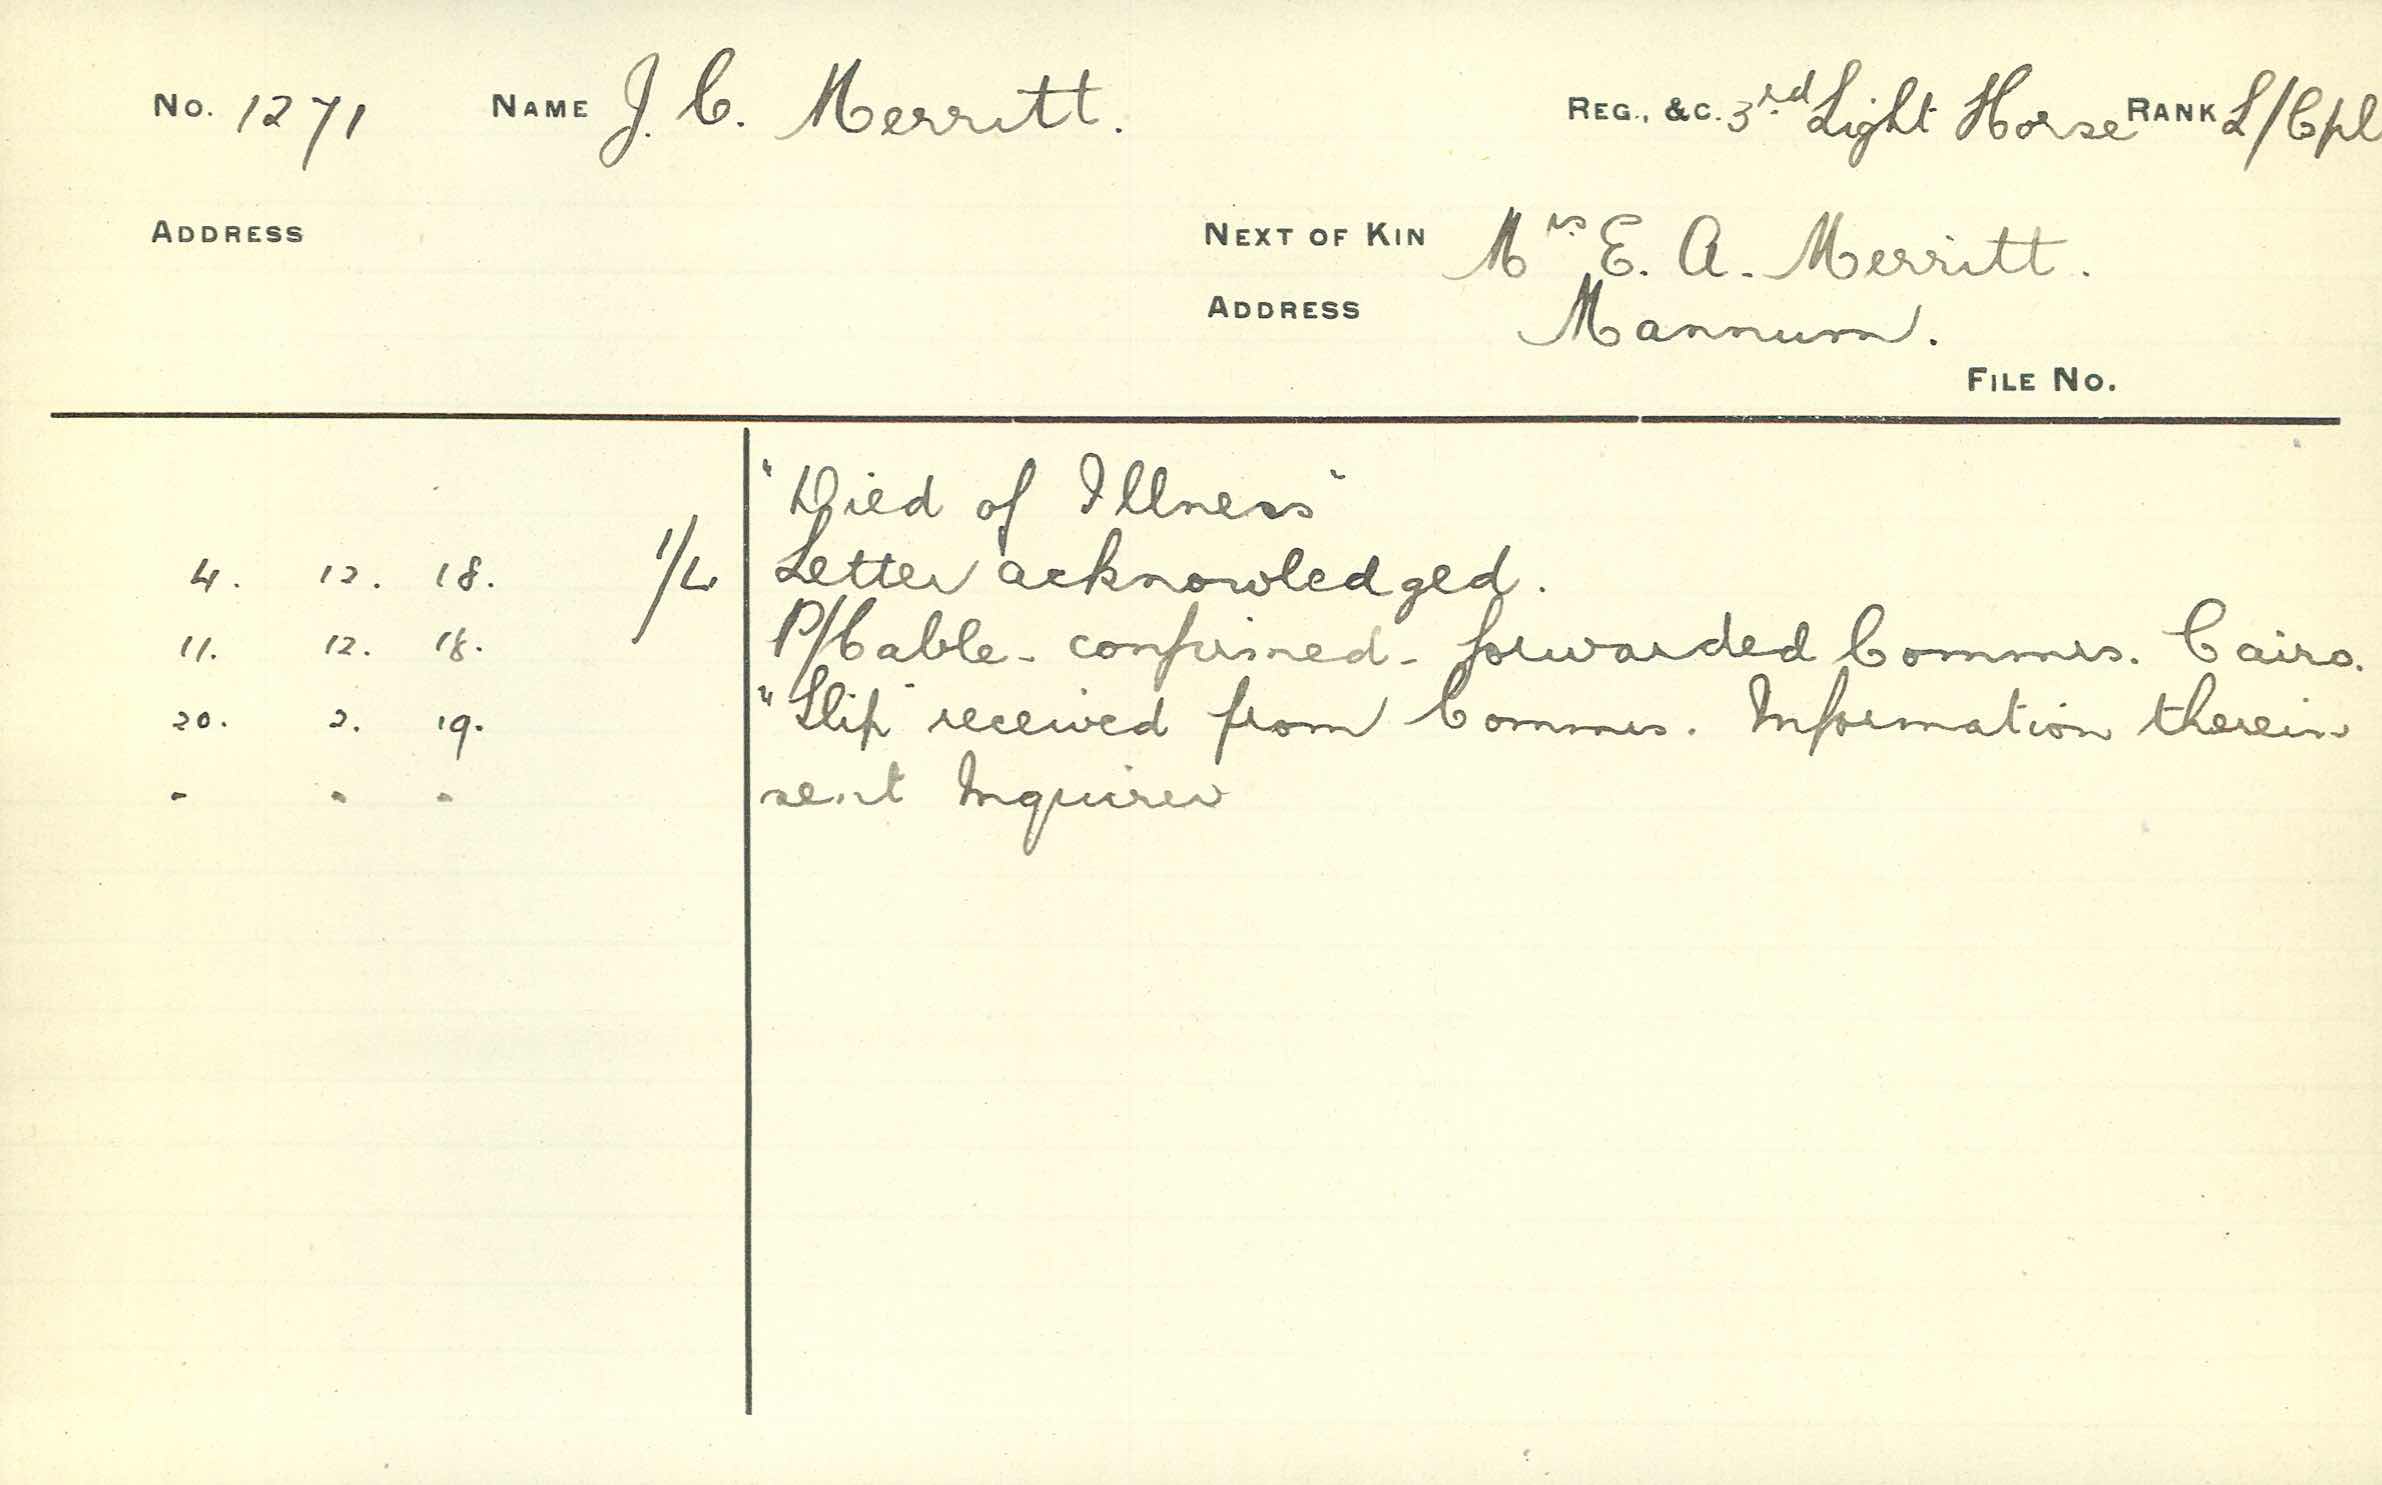 No. 1271 NAME J. C. Merritt. REG., &C. 3rd Light Horse RANK L/Cpl
ADDRESS NEXT OF KIN Mrs E. A. Merritt.
ADDRESS Mannum.
FILE No.
"Died of Illness"
4. 12. 18. 1/L Letter acknowledged.
11. 12. 18. P/Cable - confirmed - forwarded Commrs. Cairo.
20. 2. 19. "Slip" received from Commrs. Information therein
" " " sent Inquirer